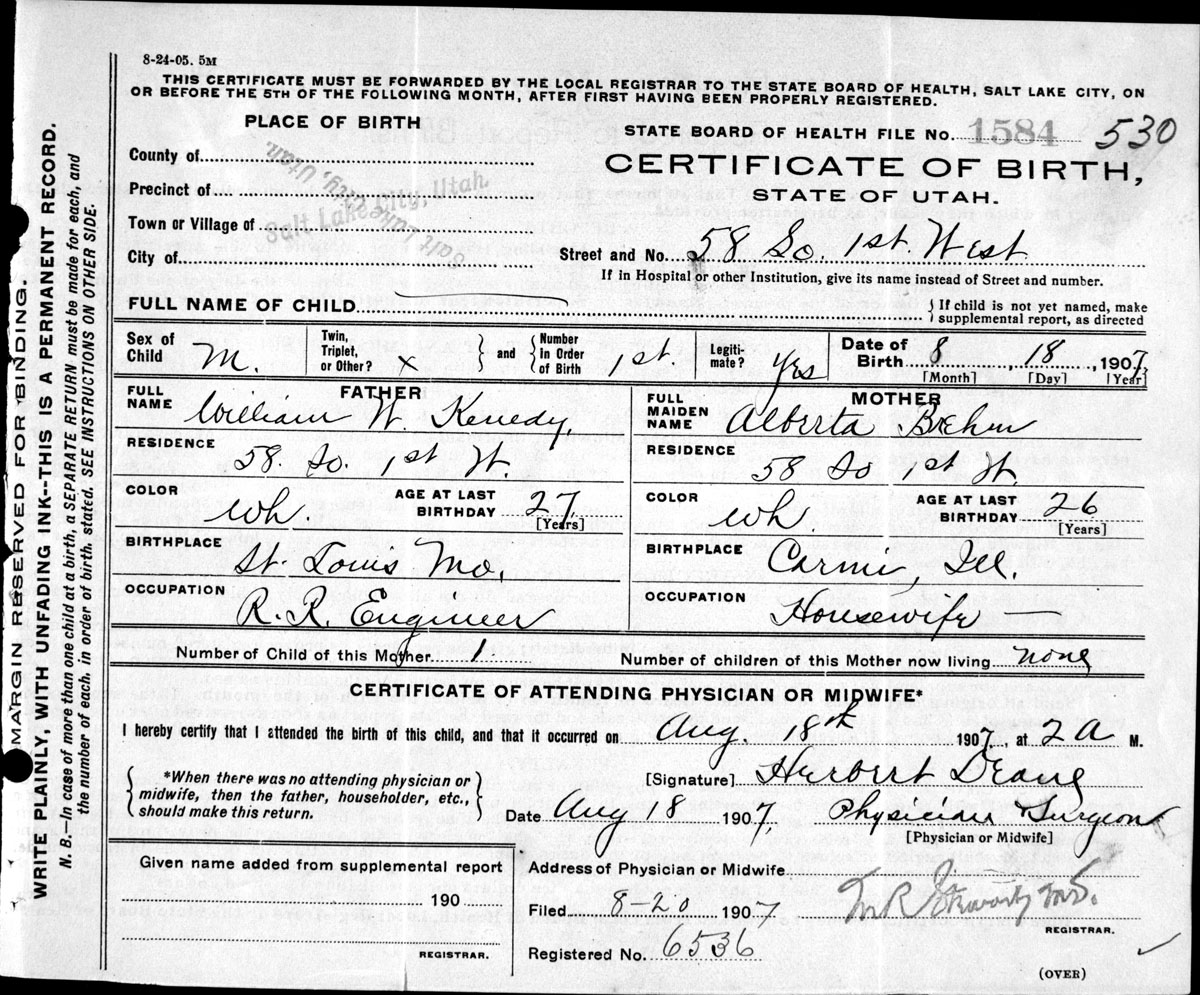 8-24-05. 5M
THIS CERTIFICATE MUST BE FORWARDED BY THE LOCAL REGISTRAR TO THE STATE BOARD OF HEALTH, SALT LAKE CITY, ON
OR BEFORE THE 5TH OF THE FOLLOWING MONTH, AFTER FIRST HAVING BEEN PROPERLY REGISTERED.
MARGIN RESERVED FOR BINDING.
WRITE PLAINLY, WITH UNFADING INK--THIS IS A PERMANENT RECORD.
N. B.—In case of more than one child at a birth, a SEPARATE RETURN must be made for each, and
the number of each, in order of birth, stated. SEE INSTRUCTIONS ON OTHER SIDE.
PLACE OF BIRTH
County of
Precinct of
Town or Village of
City of
Salt Lake City, Utah.
Salt Lake City, Utah.
STATE BOARD OF HEALTH FILE No. 1584 530
CERTIFICATE OF BIRTH,
STATE OF UTAH.
Street and No. 58 So. 1st. West
If in Hospital or other Institution, give its name instead of Street and number.
FULL NAME OF CHILD
{ If child is not yet named, make
supplemental report, as directed
Sex of Child M. Twin, Triplet, or Other? x } and { Number in Order of Birth 1st. Legiti- mate? Yes Date of Birth 8, 18, 1907
[Month] [Day] [Year]
FATHER
FULL NAME William W. Kenedy,
RESIDENCE 58. So. 1st W.
COLOR Wh. AGE AT LAST BIRTHDAY 27
[Years]
BIRTHPLACE St. Louis Mo.
OCCUPATION R. R. Engineer
MOTHER
FULL MAIDEN NAME Alberta Brehm
RESIDENCE 58 So 1st W.
COLOR Wh AGE AT LAST BIRTHDAY 26
[Years]
BIRTHPLACE Carmi, Ill.
OCCUPATION Housewife —
Number of Child of this Mother 1 Number of children of this Mother now living none
CERTIFICATE OF ATTENDING PHYSICIAN OR MIDWIFE*
I hereby certify that I attended the birth of this child, and that it occurred on Aug. 18th 1907, at 2 A M.
{ *When there was no attending physician or
midwife, then the father, householder, etc.,
should make this return. }
[Signature] Herbert
Date Aug 18 1907, Physician Surgeon
[Physician or Midwife]
Given name added from supplemental report
190
REGISTRAR.
Address of Physician or Midwife
Filed 8-20 1907
REGISTRAR.
Registered No. 6536
(OVER)